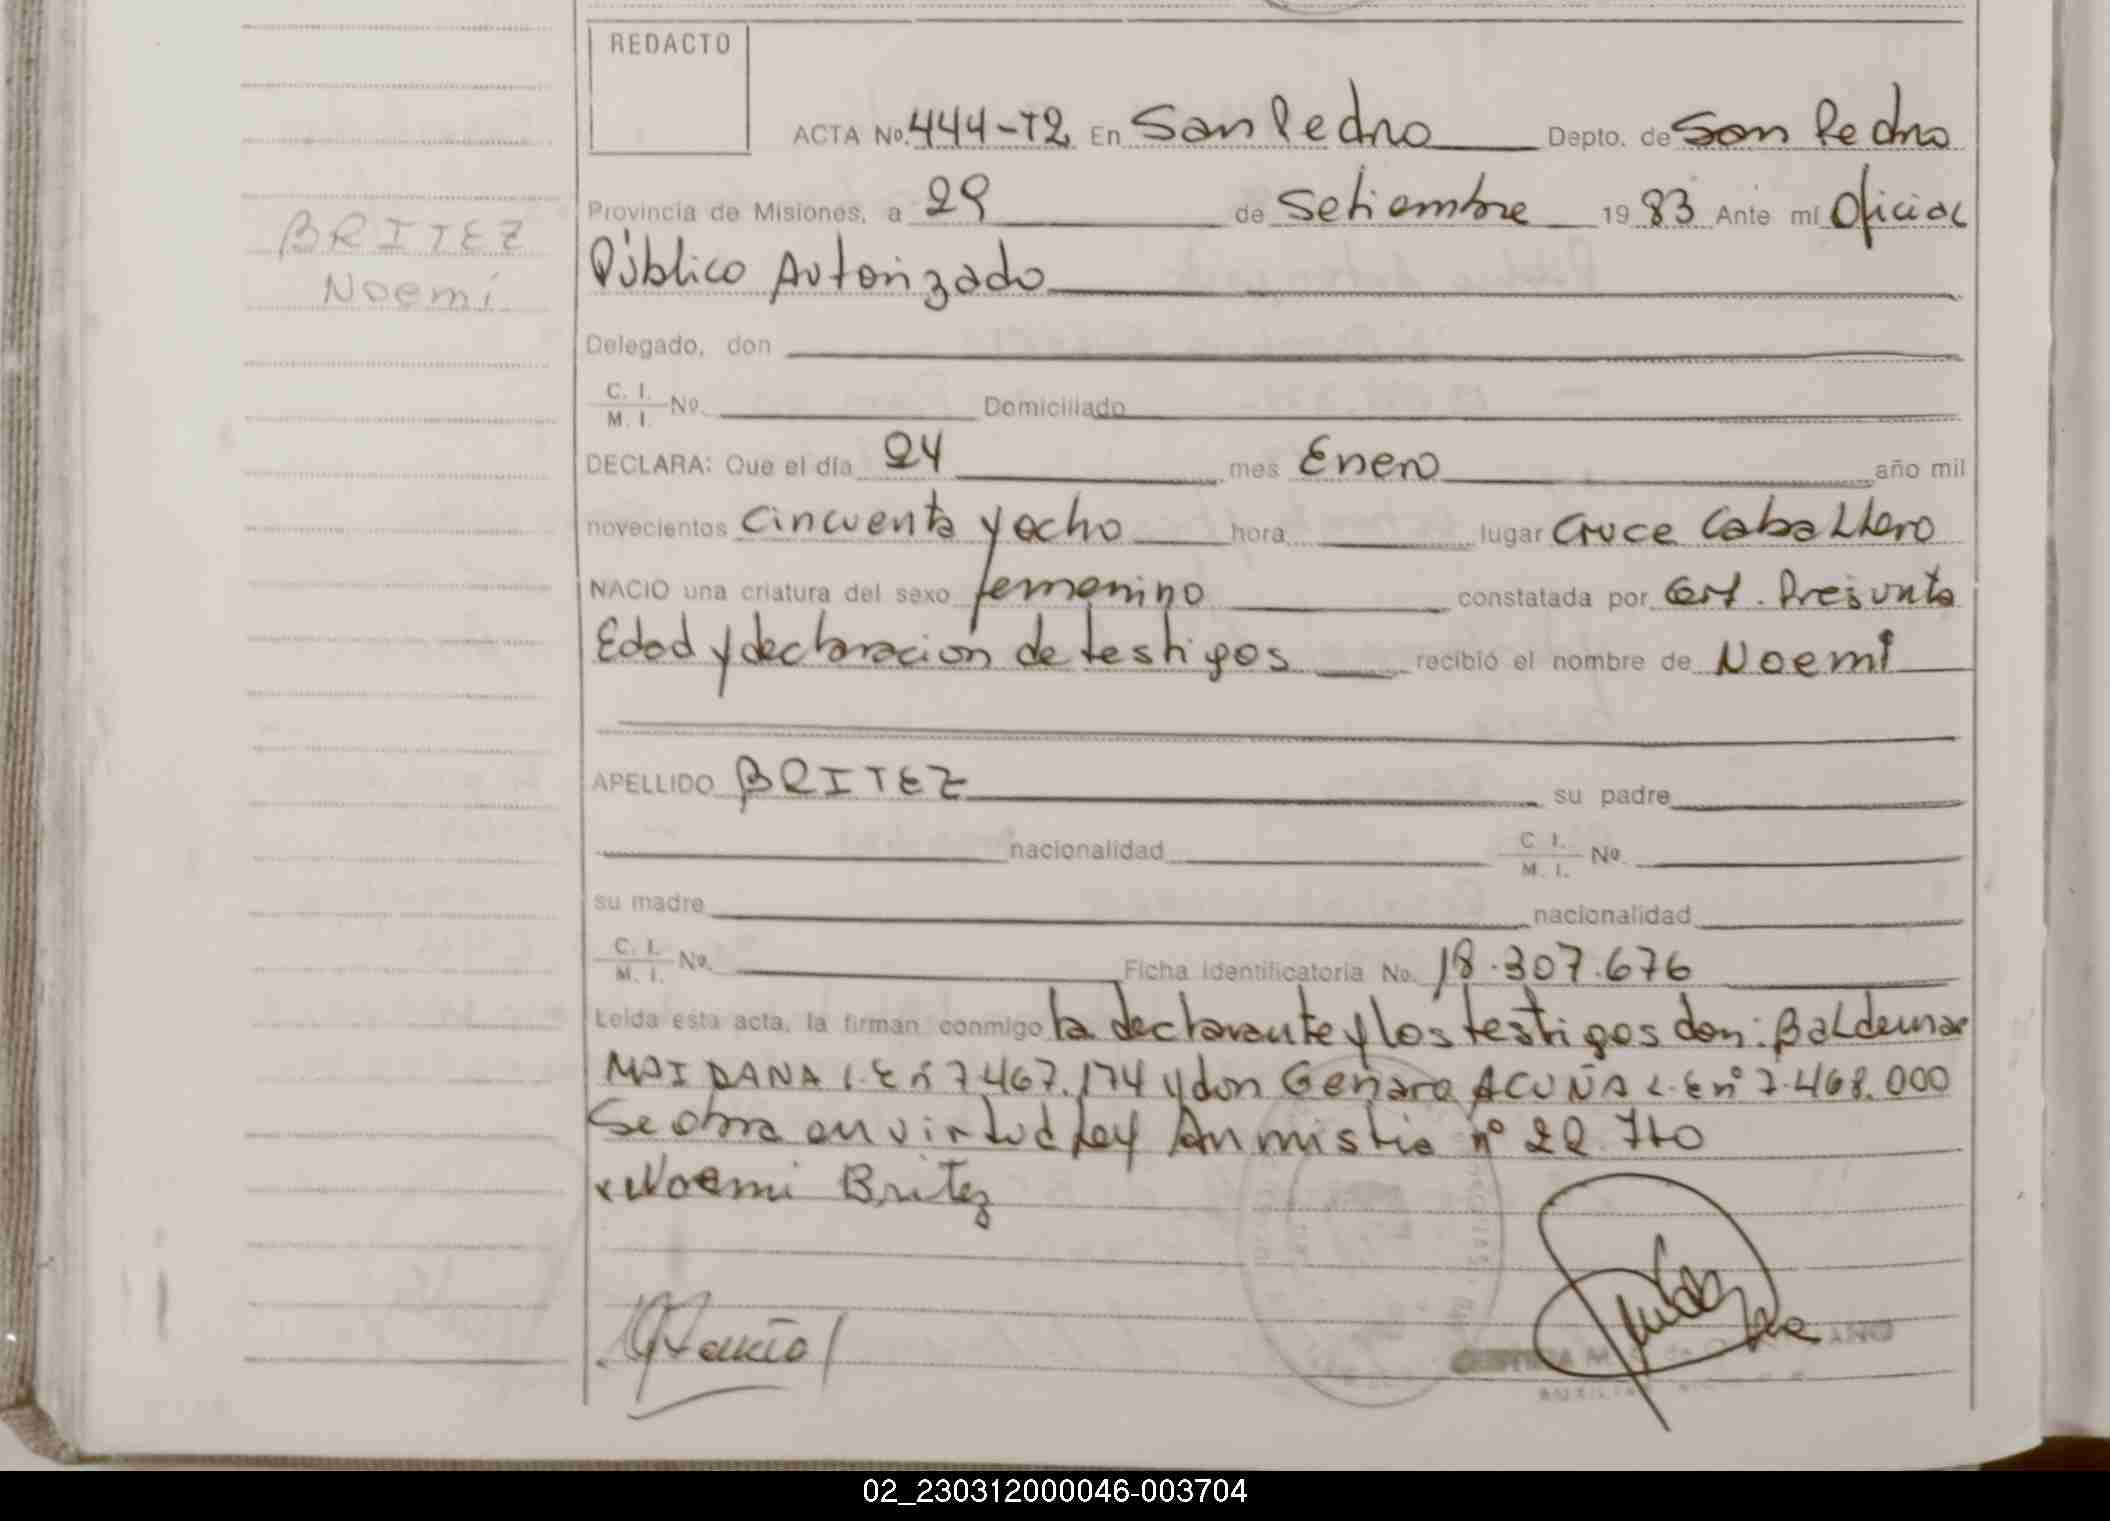 REDACTO
ACTA No. 444-T2 En San Pedro Depto. de San Pedro
Provincia de Misiones, a 29 de Setiembre 1983 Ante mí Oficial
Público Autorizado
BRITEZ
Noemí
Delegado, don
C. I.
M. I. No.
Domiciliado
DECLARA: Que el día 24 mes Enero año mil
novecientos cincuenta y ocho hora lugar Cruce Caballero
NACIO una criatura del sexo femenino constatada por Cert. Presunta
Edad y declaración de testigos recibió el nombre de Noemí
APELLIDO BRITEZ su padre
nacionalidad C. I.
M. I. No.
su madre nacionalidad
C. I.
M. I. No. Ficha Identificatoria No. 18.307.676
Leída esta acta, la firman conmigo la declarante y los testigos don: Baldemar
MAIDANA L.E nº 7.467.174 y don Genaro ACUÑA L.E nº 7.468.000
Se obra en virtud Ley Anmistia nº 22.710
x Noemi Britez
02_230312000046-003704